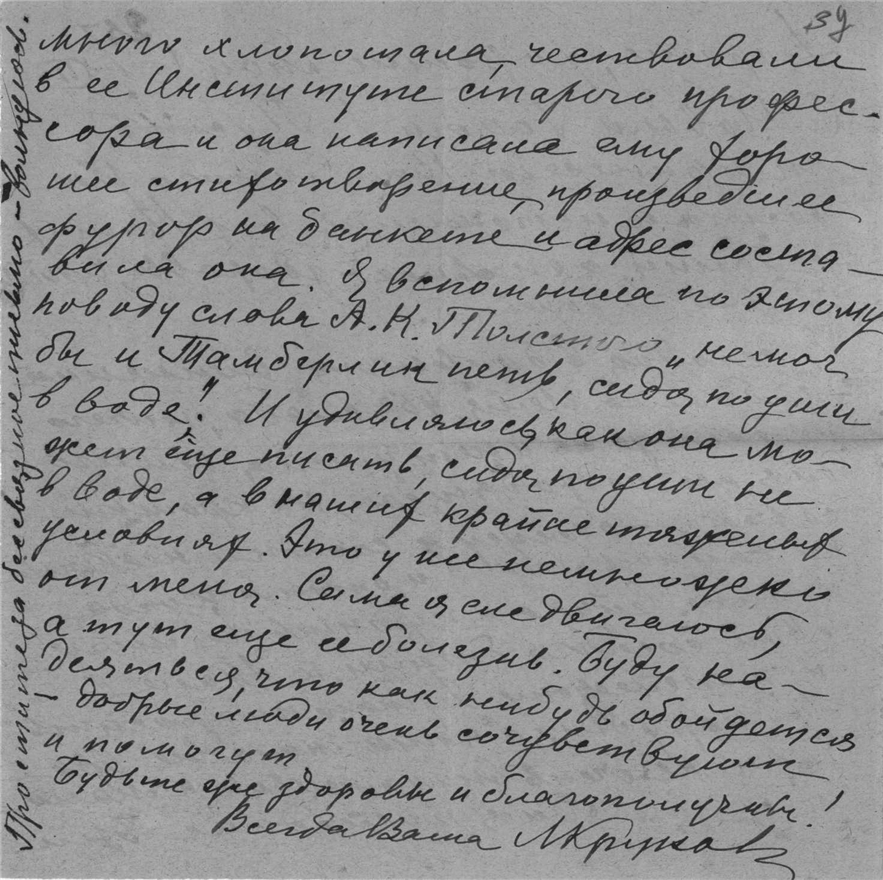 39
много хлопотала, чествовали
в ее Институте старого профес-
сора и она написала ему хоро-
шее стихотворение, произведшее
фурор на банкете и адрес соста-
вила она. Я вспомнила по этому
поводу слова А. К. Толстого „не мог
бы и Тамберлик петь, сидя по уши
в воде!" И удивляюсь, как она мо-
жет еще писать, сидя по уши не
в воде, а в наших крайне тяжелых
условиях. Это у нее немножеко
от меня. Сама я еле двигаюсь,
а тут еще ее болезнь. Буду на-
деяться, что как нибудь обойдется
– добрые люди очень сочувствуют
и помогут
Будьте же здоровы и благополучны!
Всегда Ваша
Простите за бессвязное письмо – волнуюсь.